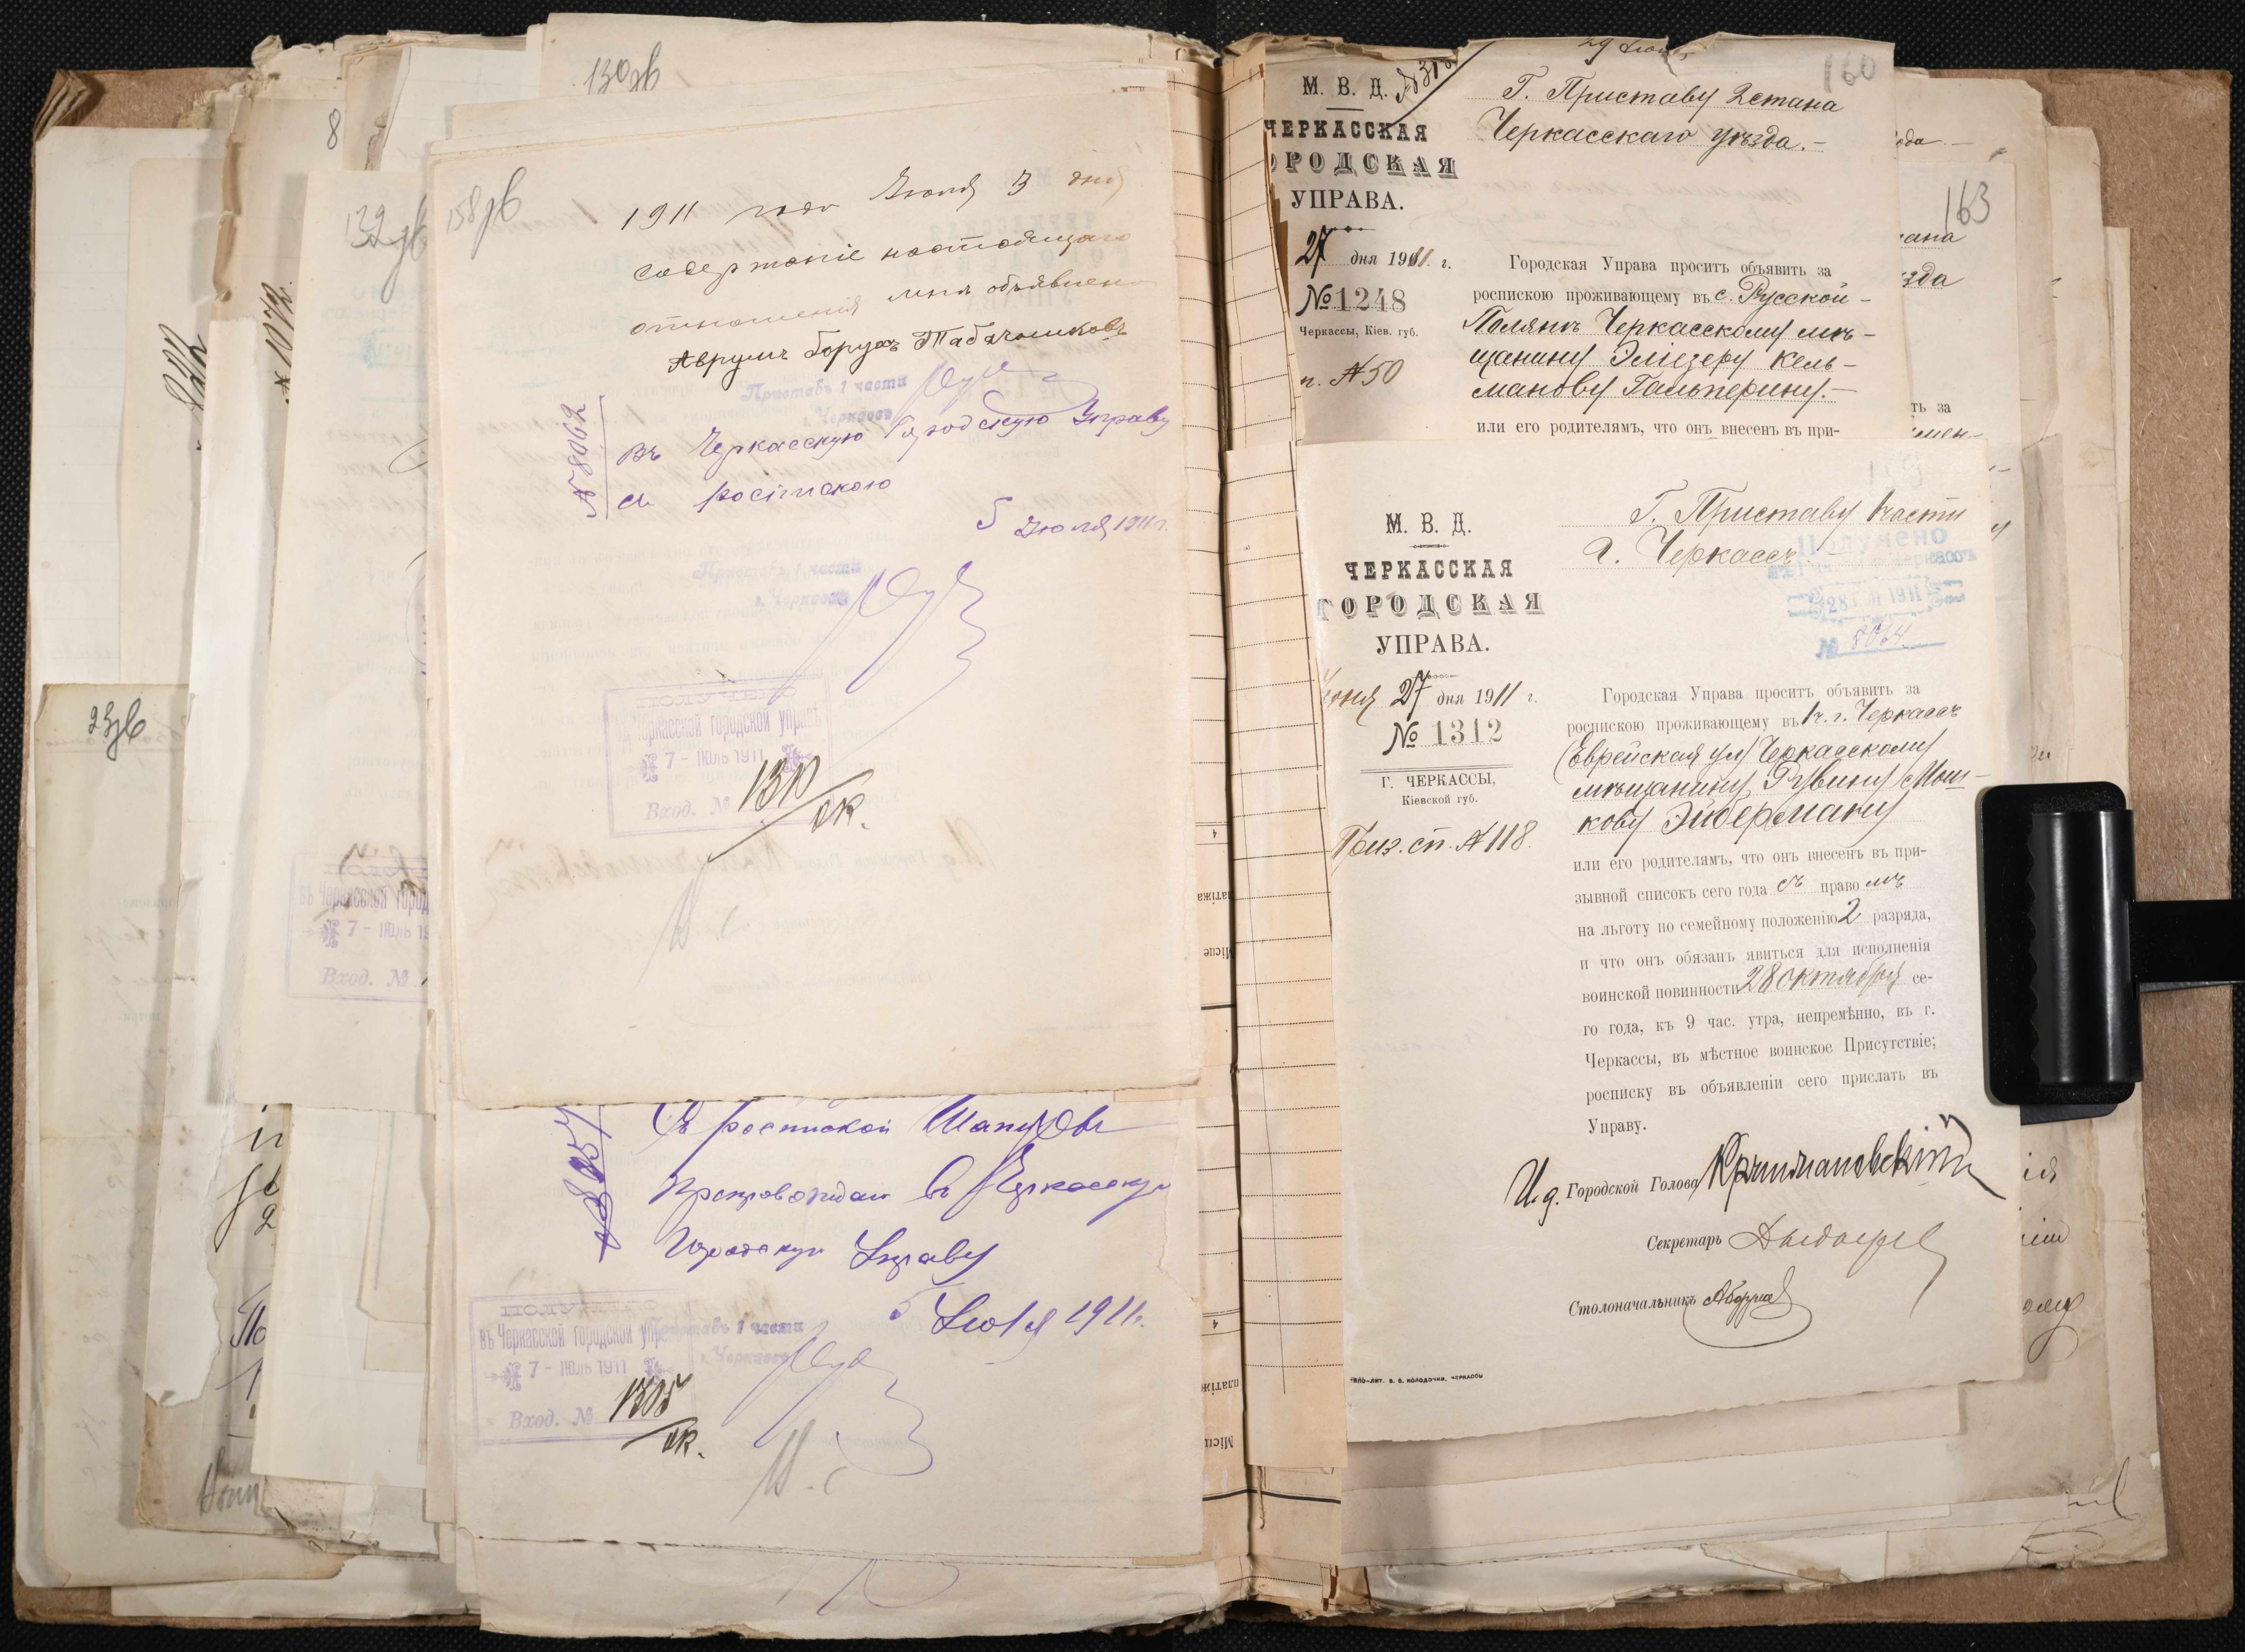 130зв
8
132зв
158зв
23зв
№ 1072.
1911 года Июля 3 дня
содержание настоящаго
отношенія мнѣ объявлено
Аврумъ Борухъ Табачниковъ
Приставъ 1 части
г. Черкассъ
№ 8062
Въ Черкасскую Городскую Управу
съ роспискою
5 Июля 1911 г.
Приставъ 1 части
г. Черкассъ
ПОЛУЧЕНО
въ Черкасской городской управѣ
7 - ІЮЛЬ 1911
Вход. № 1310
ок.
въ Черкасской город
7 - ІЮЛЬ 19
Вход. №
Съ роспиской
препровождаю въ Черкасскую
Городскую Управу
5 Июля 1911 г.
Приставъ 1 части
г. Черкассъ
ПОЛУЧЕНО
въ Черкасской городской упр
7 - ІЮЛЬ 1911
Вход. № 1305
ок.
160
М. В. Д.
ЧЕРКАССКАЯ
ОРОДСКАЯ
УПРАВА.
27 дня 1911 г.
№ 1248
Черкассы, Кіев. губ.
п. № 50
Г. Приставу 2 стана
Черкасскаго уѣзда.-
Городская Управа проситъ объявить за
роспискою проживающему въ с. Русской-
Полянѣ Черкасскому мѣ-
щанину Эліезеру Кель-
манову Гальперину.-
или его родителямъ, что онъ внесенъ въ при-
163
ана
зда
ть за
М. В. Д.
ЧЕРКАССКАЯ
ГОРОДСКАЯ
УПРАВА.
Іюня 27 дня 1911 г.
№ 1312
Г. ЧЕРКАССЫ,
Кіевской губ.
Приз. сп. № 118.
Г. Приставу 1 части
г. Черкассъ
Получено
28 1911
№ 8064
Городская Управа проситъ объявить за
роспискою проживающему въ 1 ч. г. Черкассъ
(Еврейская ул) Черкасскому
мѣщанину Рувину Мош-
кову Эйдерману
или его родителямъ, что онъ внесенъ въ при-
зывной списокъ сего года съ правомъ
на льготу по семейному положенію 2 разряда,
и что онъ обязанъ явиться для исполненія
воинской повинности 28 октября се-
го года, къ 9 час. утра, непремѣнно, въ г.
Черкассы, въ мѣстное воинское Присутствіе;
росписку въ объявленіи сего прислать въ
Управу.
И. д. Городской Голова
Секретарь
Столоначальникъ
ТИПО-ЛИТ. В. В. КОЛОДОЧКИ, ЧЕРКАССЫ